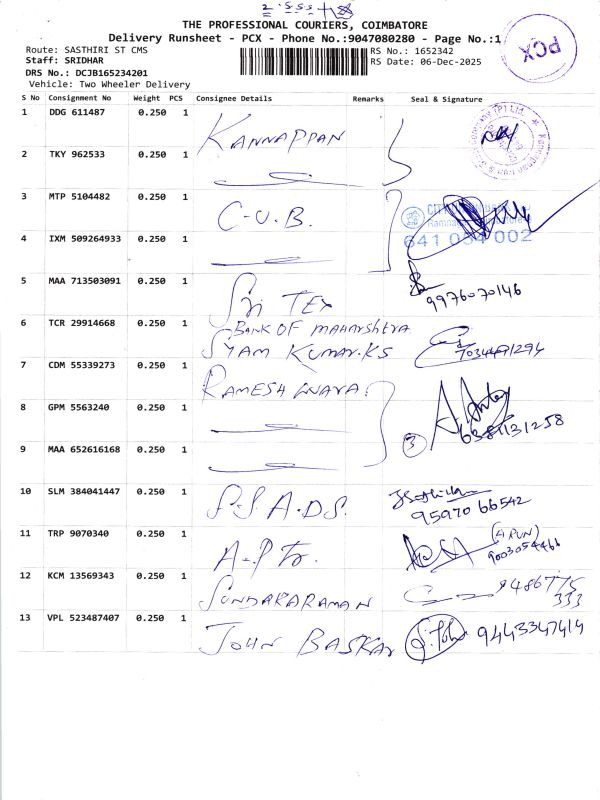 THE PROFESSIONAL COURIERS, COIMBATORE
Delivery Runsheet - PCX - Phone No.:9047080280 - Page No.:1
PCX
Route: SASTHIRI ST CMS
RS No.: 1652342
Staff: SRIDHAR
RS Date: 06-Dec-2025
DRS No.: DCJB165234201
Vehicle: Two Wheeler Delivery
S No Consignment No Weight PCS Consignee Details Remarks Seal & Signature
1 DDG 611487 0.250 1 KANNAPPAN
2 TKY 962533 0.250 1
3 MTP 5104482 0.250 1 C-U.B.
4 IXM 509264933 0.250 1
641 002
5 MAA 713503091 0.250 1 Sri TEX
9976070146
6 TCR 29914668 0.250 1 BANK OF MAHARSHTRA
SYAM KUMAR.KS
7 CDM 55339273 0.250 1 RAMESH
8 GPM 5563240 0.250 1
3
9 MAA 652616168 0.250 1
10 SLM 384041447 0.250 1 S.S.A.DS.
95970 66542
11 TRP 9070340 0.250 1 A-P Tr.
(ARUN)
9003054466
12 KCM 13569343 0.250 1 SUNDARARAMAN
9486775
333
13 VPL 523487407 0.250 1 JOHN BASKAR
9443347414